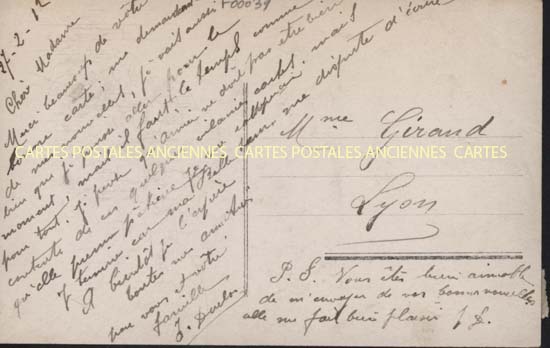 27-2-12
F00039
Chère Madame
Merci beaucoup de votre
bonne carte; me demandant
de mes nouvelles, je vais aussi
bien que je puisse aller pour le
moment, mais il fait le temps comme
pour tout, je pense ne doit pas être bien
contente de ces quelques vilaines cartes,
qu'elle prenne patience mais
je termine car ma me dispute d'écrire
A bientôt je l'espère
toutes mes amitiés
pour vous et votre
famille
J.
Mme Giraud
Lyon
CARTES POSTALES ANCIENNES CARTES POSTALES ANCIENNES CARTES
P.S. Vous êtes bien aimable
de m'envoyer de vos bonnes nouvelles
elle me fait bien plaisir J. D.